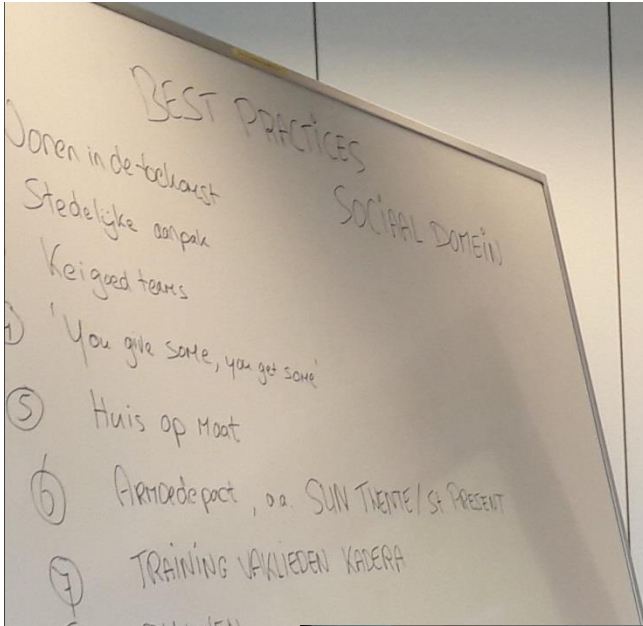 BEST PRACTICES
SOCIAAL DOMEIN
Wonen in de toekomst
Stedelijke aanpak
Keigoed teams
4 'You give some, you get some'
5 Huis op Maat
6 Armoedepact, o.a. SUN TWENTE / St PRESENT
7 TRAINING VAKLIEDEN KADERA